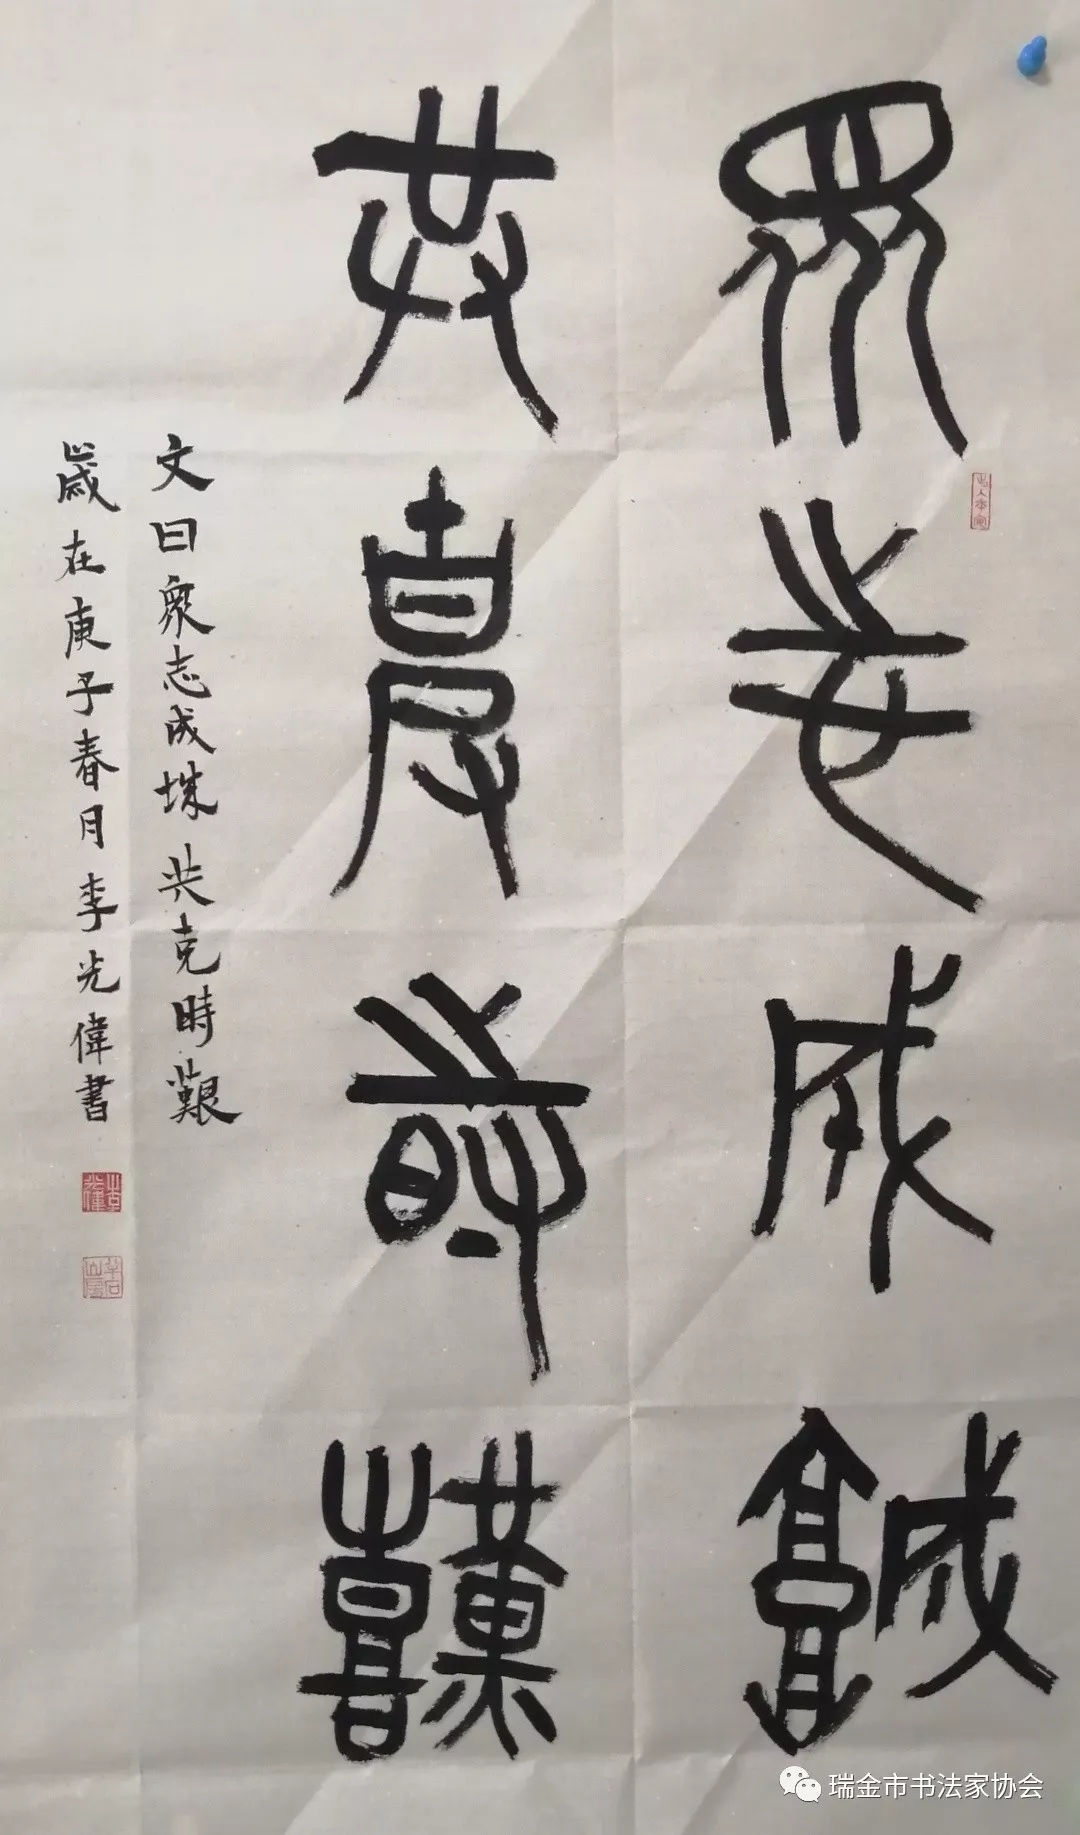 眾志成城
共克時艱
文曰眾志成城共克時艱
歲在庚子春月李光偉書
瑞金市书法家协会